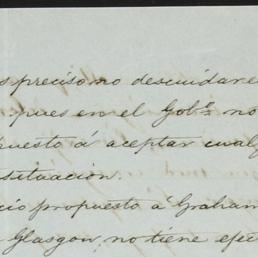 s preciso no descuidar e
pues en el Gobo no
puesto á aceptar cualq
situacion.
cio propuesto a Graham
Glasgow, no tiene efec